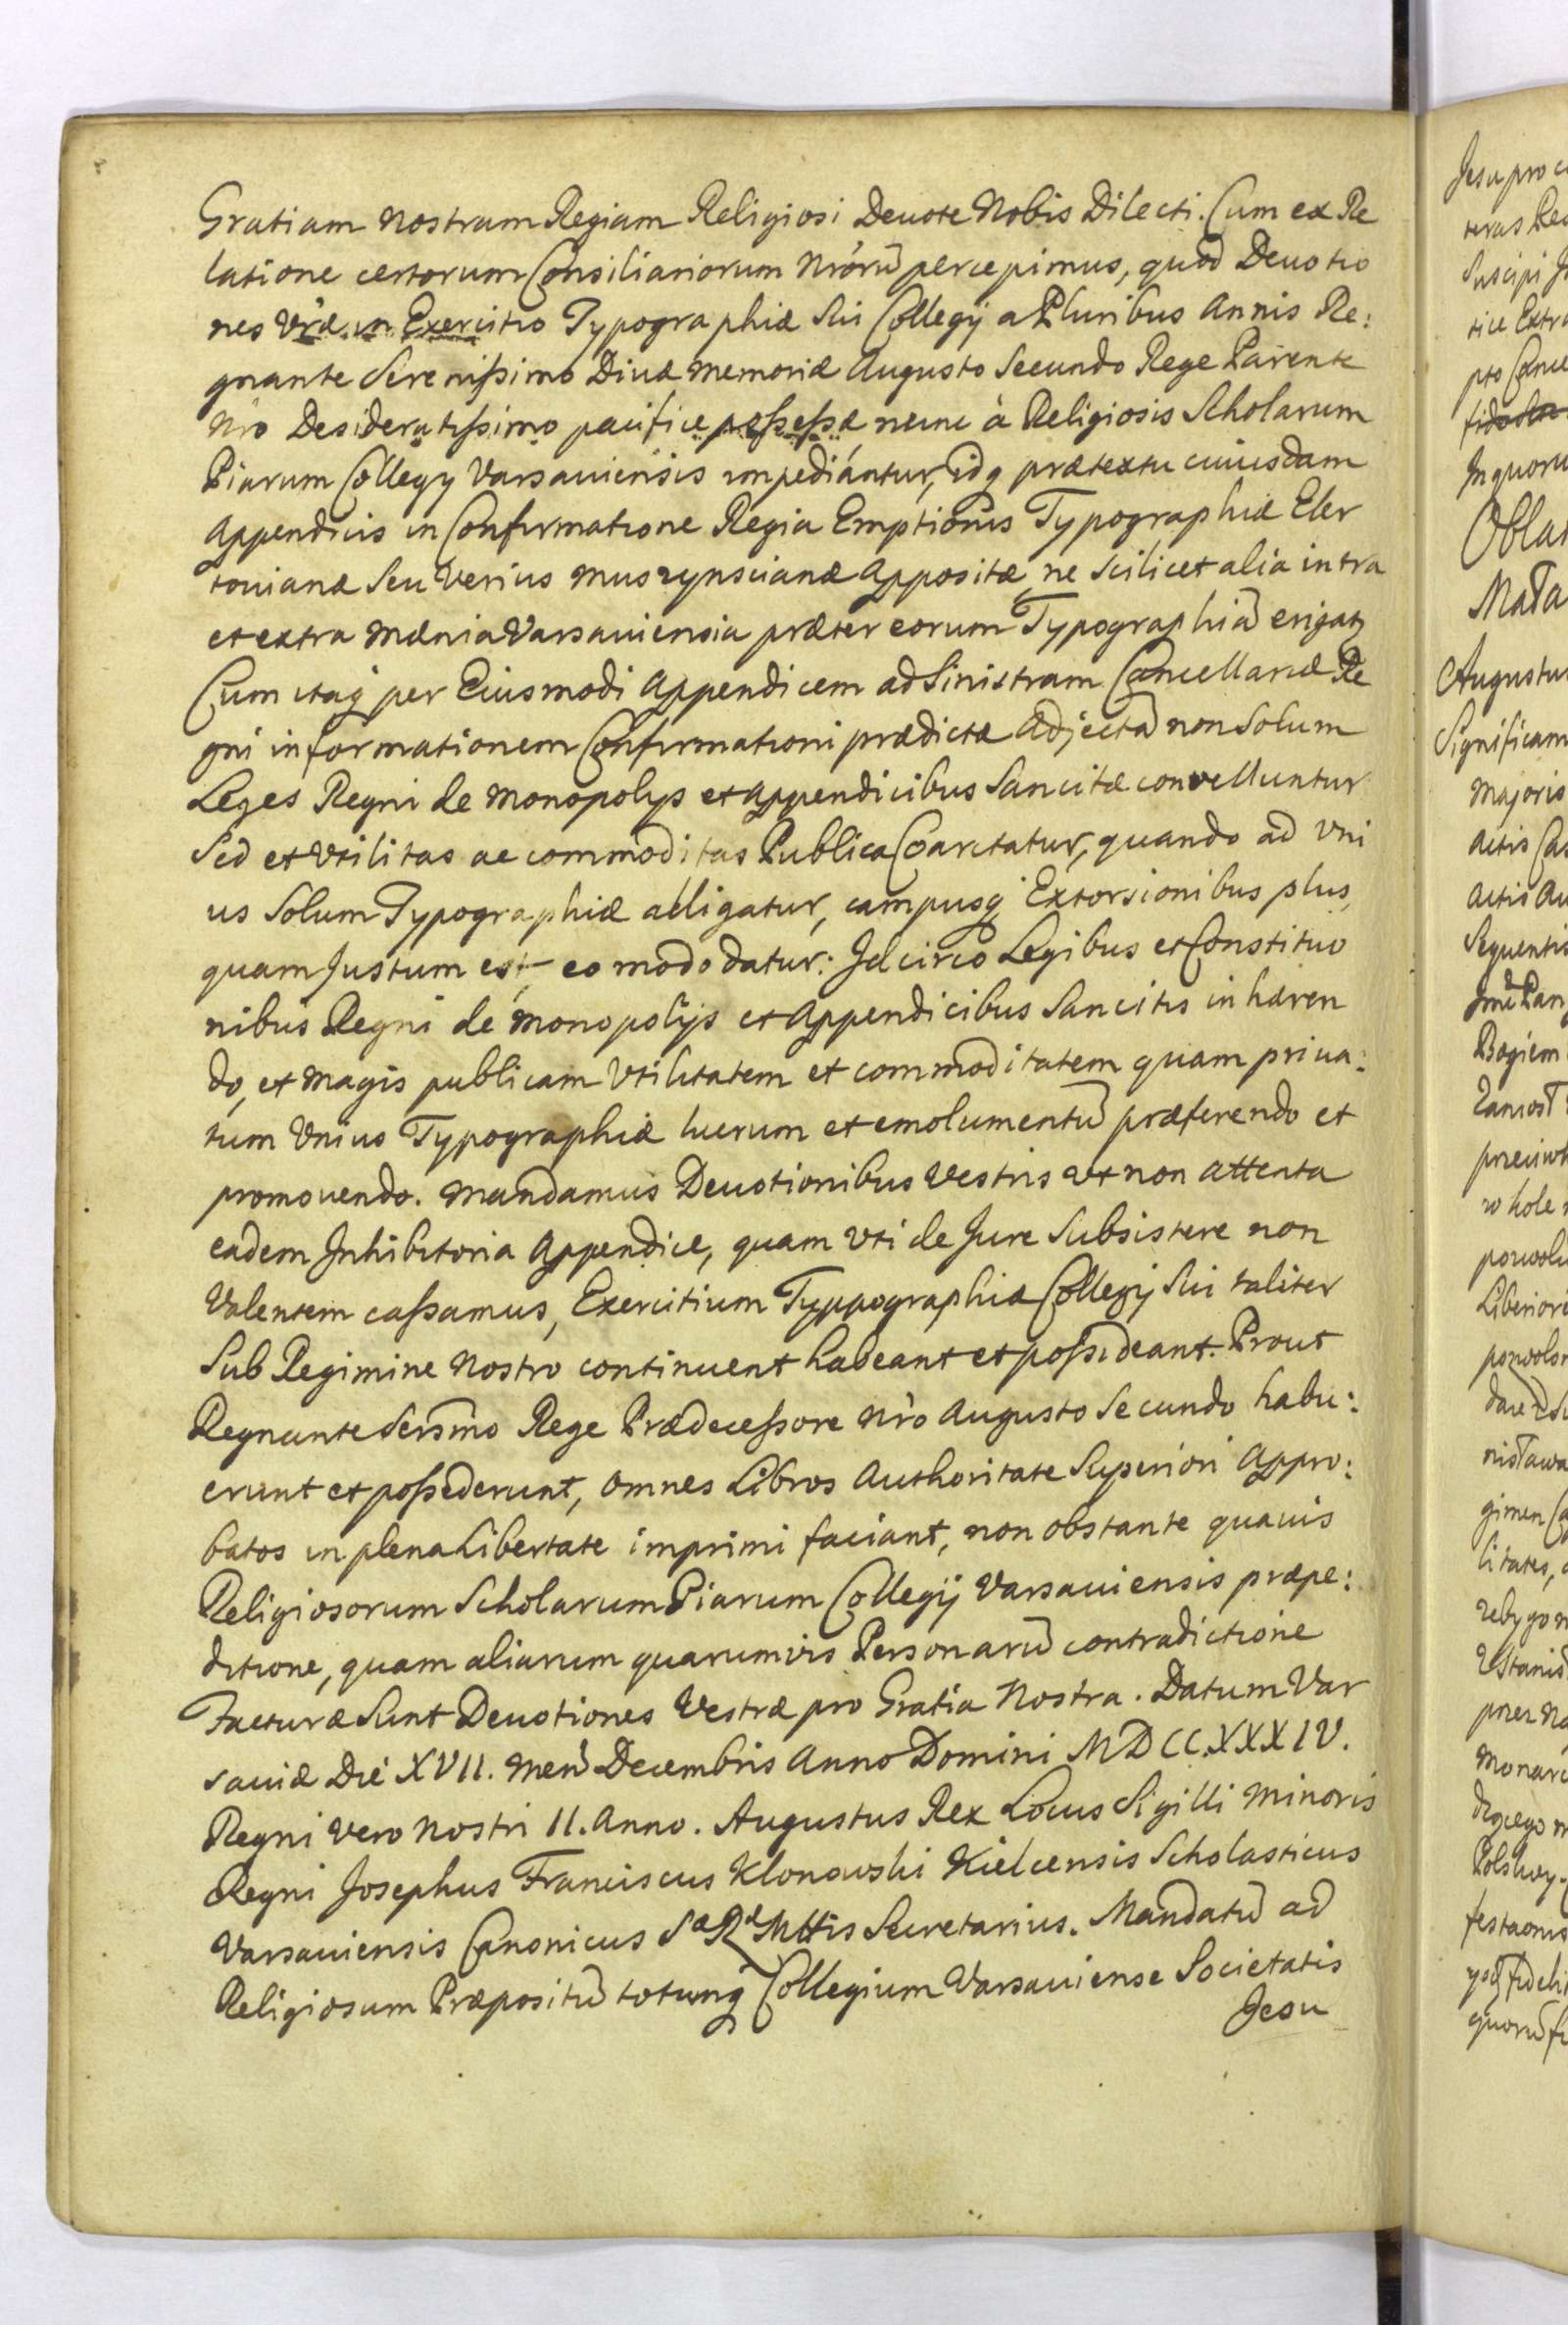 Gratiam nostram Regiam Religiosi Deuote Nobis Dilecti. Cum ex Re
latione certorum Consiliariorum Nrorũ percepimus, quod Deuotio
nes Vræ in Exercitio Typographiæ Sui Collegij a Pluribus Annis Re:
gnante Serenissimo Diuæ memoriæ Augusto Secundo Rege Parente
Nro Desideratissimo pacifice possessæ nunc à Religiosis Scholarum
Piarum Collegij Varsauiensis impediantur, idq prætextu cuiusdam
Appendicis in Confirmatione Regia Emptionis Typographiæ Eler
touianæ Seu Verius Muszynscianæ Appositæ, ne scilicet alia intra
et extra Mænia Varsauiensia præter eorum Typographiã erigatz
Cum itaq per Eiusmodi Appendicem ad Sinistram Cancellariæ Re
gni informationem Confirmationi prædictæ Adjectã non solum
Leges Regni de Monopolijs et Appendicibus Sancitæ convelluntur
Sed et Vtilitas ac commoditas Publica Coarctatur, quando ad Vni
us Solum Typographiæ alligatur, campusq Extorsionibus plus,
quam Justum est, eo modo datur: Idcirco Legibus et Constitutio
nibus Regni de Monopolijs et Appendicibus Sancitis inhæren
do, et Magis publicam Vtilitatem et commoditatem quam priua:
tum Vnius Typographiæ lucrum et emolumentũ præferendo et
promouendo. Mandamus Deuotionibus Vestris vt non attenta
eadem Inhibitoria Appendice, quam Vti de Jure Subsistere non
Valentem cassamus, Exercitium Typpographiæ Collegij Sui taliter
Sub Regimine Nostro continuent habeant et possideant. Prout
Regnante Sersmo Rege Prædecessore Nro Augusto Secundo habu:
erunt et possederunt, omnes Libros Authoritate Superiori Appro:
batos in plena Libertate imprimi faciant, non obstante quauis
Religiosorum Scholarum Piarum Collegij Varsauiensis præpe:
ditione, quam aliarum quarumvis Personarũ contradictione
Facturæ Sunt Deuotiones Vestræ pro Gratia Nostra. Datum Var
sauiæ Die XVII. Men Decembris Anno Domini MDCC.XXXIV.
Regni Vero Nostri II. Anno. Augustus Rex Locus Sigilli Minoris
Regni Josephus Franciscus Klonowski Kielcensis Scholasticus
Varsauiensis Canonicus Sæ Ræ Mttis Secretarius. Mandatũ ad
Religiosum Præpositũ totumq Collegium Varsauiense Societatis
Jesu
Jesu pro
Suscipi
In quoru
Augustu
Significam
Majoris
Actis
Actis
Sequentis
Bogiem
w hole